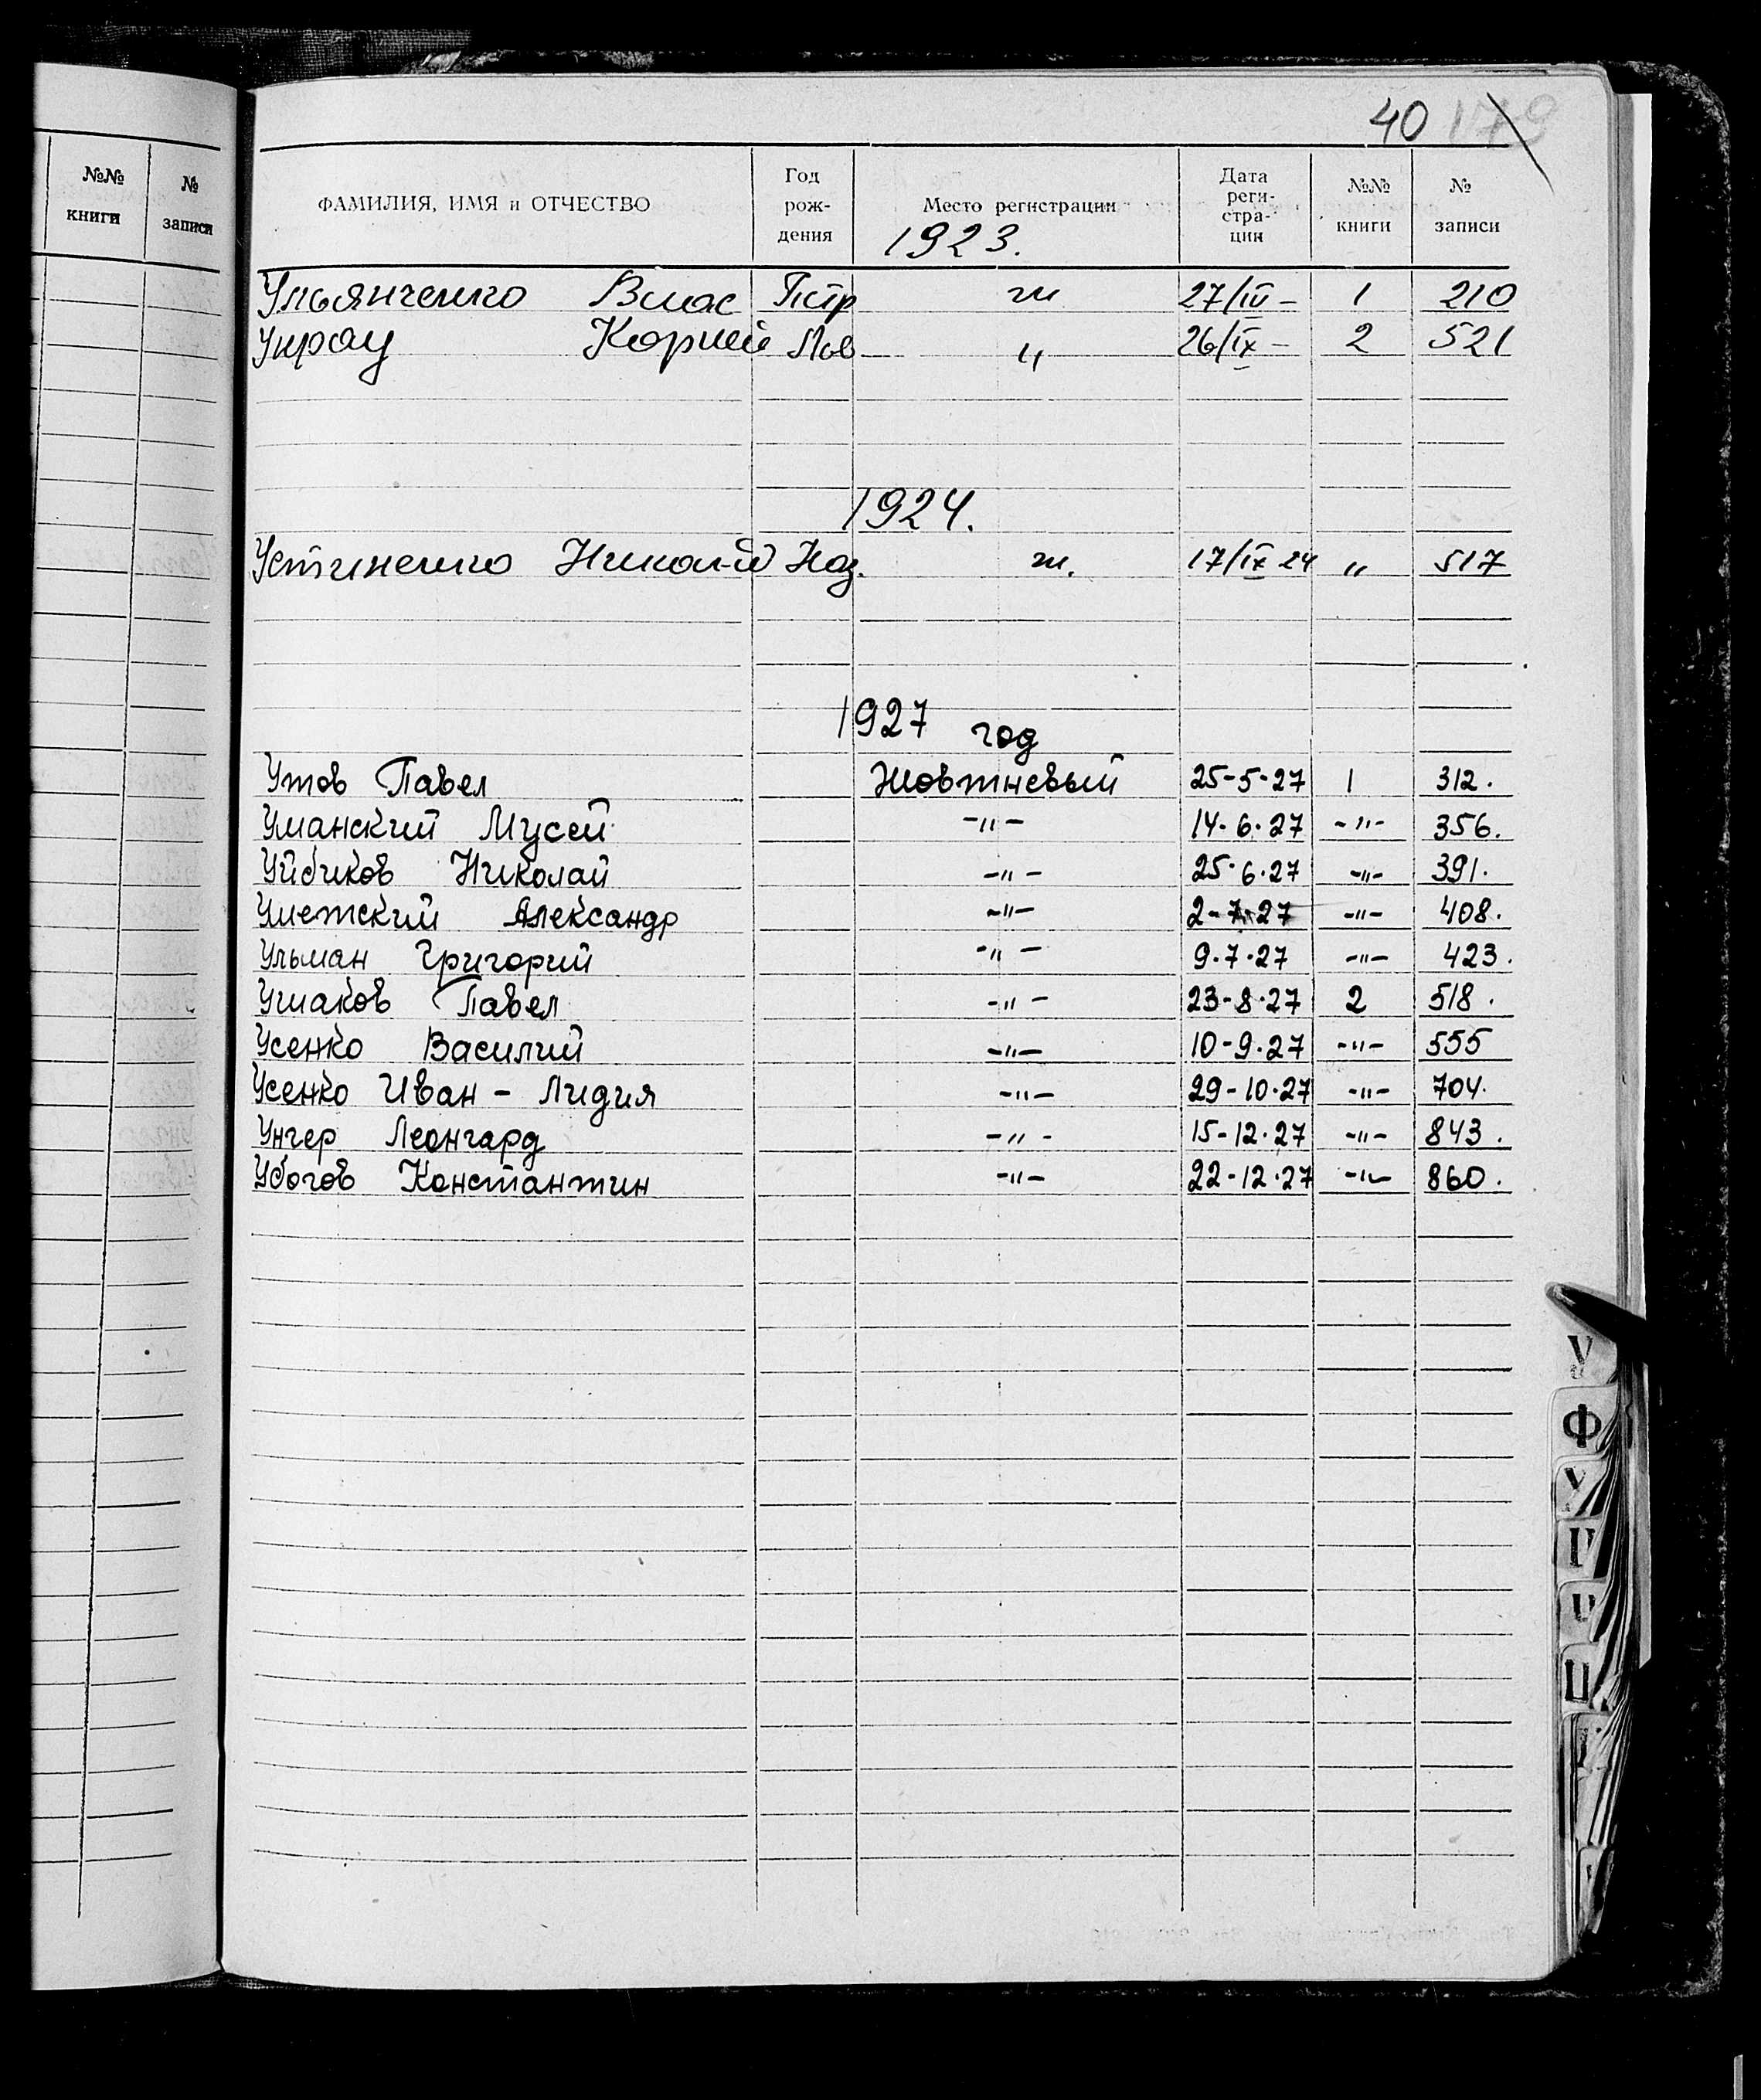 40 179
№№ книги
№ записи
ФАМИЛИЯ, ИМЯ и ОТЧЕСТВО
Год рож- дения
Место регистрации
Дата реги- стра- ции
№№ книги
№ записи
1923.
Ульянченко Влас Петр ж 27/III – 1 210
Унрау Корней Яков " 26/IX – 2 521
1924.
Устиненко Никол-й Наз. ж. 17/IX 24 " 517
1927 год
Утов Павел Жовтневый 25-5-27 1 312.
Уманский Мусей -"- 14-6-27 -"- 356.
Уйбиков Николай -"- 25-6-27 -"- 391.
Александр -"- 2-7-27 -"- 408.
Ульман Григорий -"- 9-7-27 -"- 423.
Ушаков Павел -"- 23-8-27 2 518.
Усенко Василий -"- 10-9-27 -"- 555
Усенко Иван – Лидия -"- 29-10-27 -"- 704.
Унгер Леонгард -"- 15-12-27 -"- 843.
Убогов Константин -"- 22-12-27 -"- 860.
У
Ф